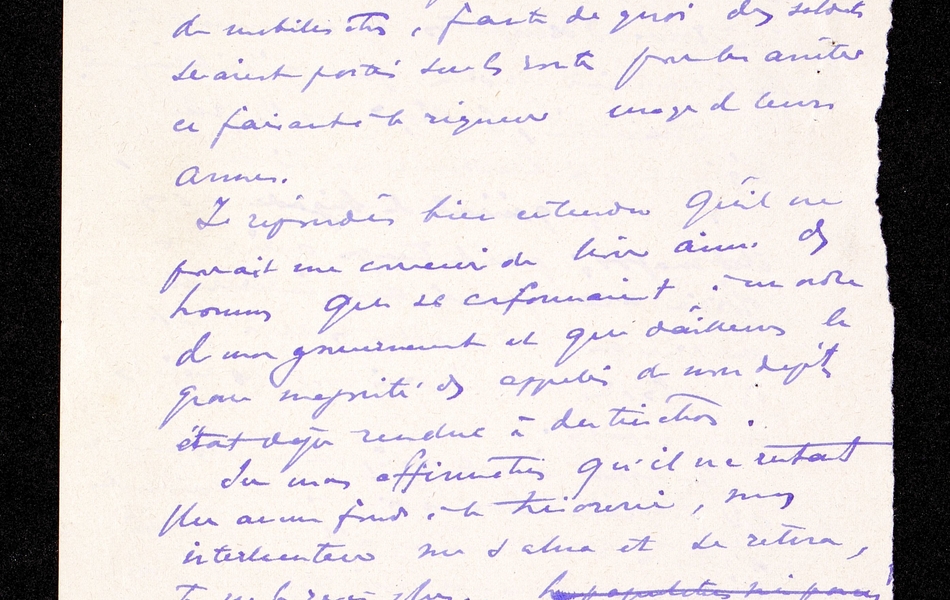 de mobilisation, faute de quoi des soldats
seraient postés sur la route pour les arrêter
en faisant à la rigueur usage de leurs
armes.
Je répondis bien entendu qu'il ne
pouvait me convenir de livrer ainsi des
hommes qui se conformaient à un ordre
de mon gouvernement et que d'ailleurs la
grosse majorité des appelés de mon dépôt
était déjà rendue à destination.
Sur mon affirmation qu'il ne restait
plus aucun fonds à la trésorerie, mon
interlocuteur me salua et se retira,
je ne le revis plus.